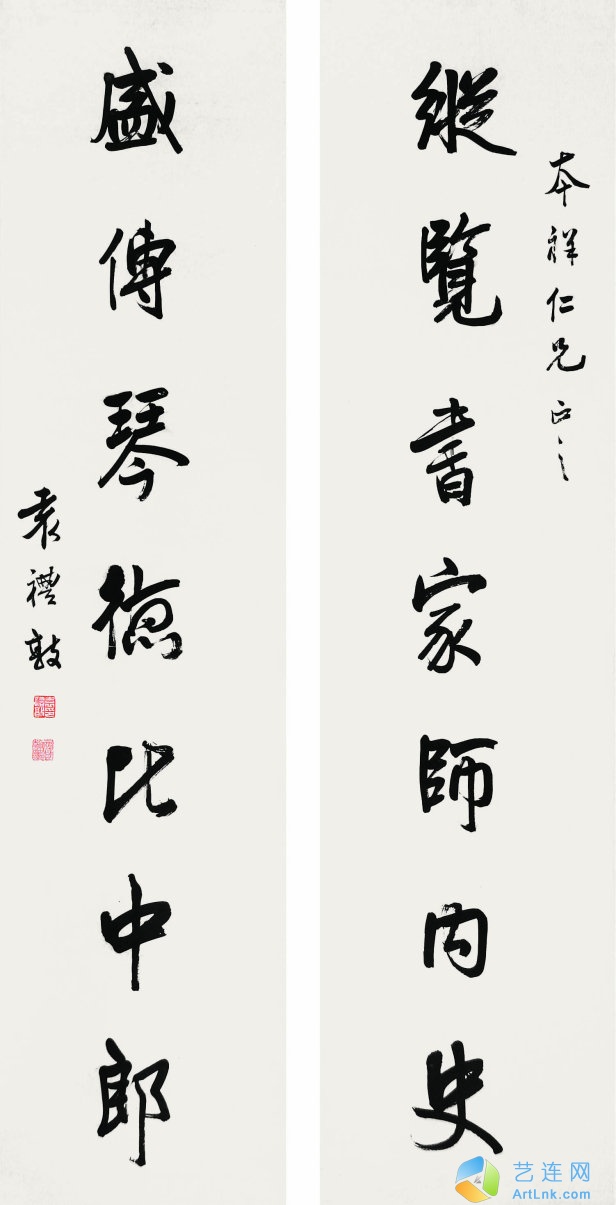 本祥仁兄正之
縱覽書家師内史
盛傳琴德比中郎
袁禮敦
艺连网
ArtLnk.com